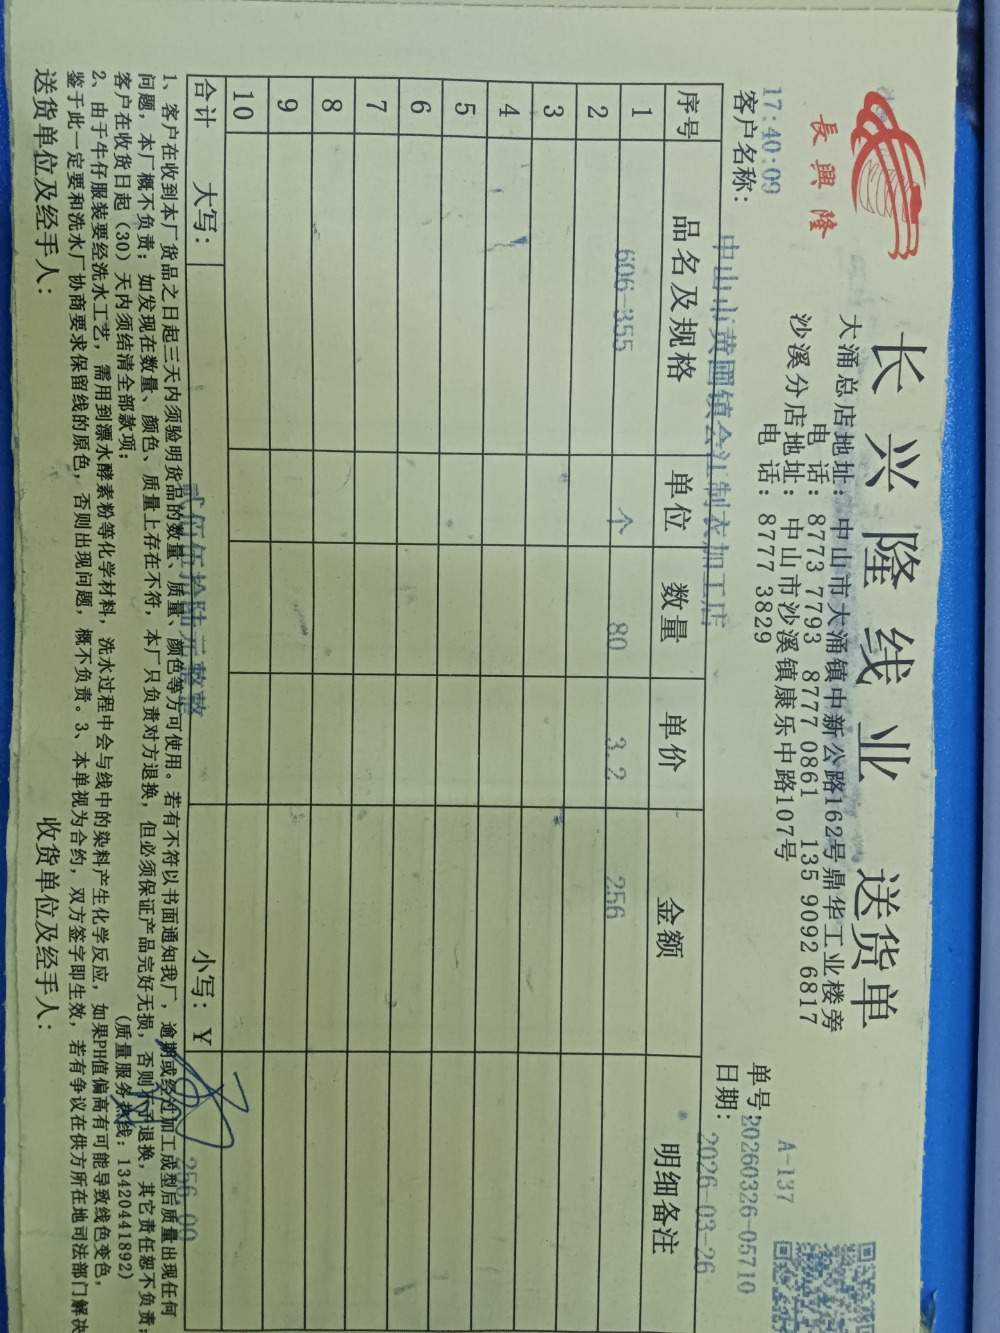 長興隆
长兴隆线业 送货单
大涌总店地址：中山市大涌镇中新公路162号鼎华工业楼旁
电 话：8773 7793 8777 0861 135 9092 6817
沙溪分店地址：中山市沙溪镇康乐中路107号
电 话：8777 3829
A-137
17:40:09
单号：20260326-05710
客户名称：中山市黄圃镇会江制衣加工店
日期：2026-03-26
序号 品名及规格 单位 数量 单价 金额 明细备注
1 606-355 个 80 3.2 256
2
3
4
5
6
7
8
9
10
合计 大写：贰佰伍拾陆元整 小写：¥ 256.00
1、客户在收到本厂货品之日起三天内须验明货品的数量、质量、颜色等方可使用。若有不符以书面通知我厂，逾期或经过加工成型后质量出现任何
问题，本厂概不负责；如发现在数量、颜色、质量上存在不符，本厂只负责对方退换，但必须保证产品完好无损，否则不予退换，其它责任恕不负责；
客户在收货日起（30）天内须结清全部款项； （质量服务热线：13420441892）
2、由于牛仔服装要经洗水工艺，需用到漂水酵素粉等化学材料，洗水过程中会与线中的染料产生化学反应，如果PH值偏高有可能导致线色变色，
鉴于此一定要和洗水厂协商要求保留线的原色，否则出现问题，概不负责。3、本单视为合约，双方签字即生效，若有争议在供方所在地司法部门解决
送货单位及经手人： 收货单位及经手人：